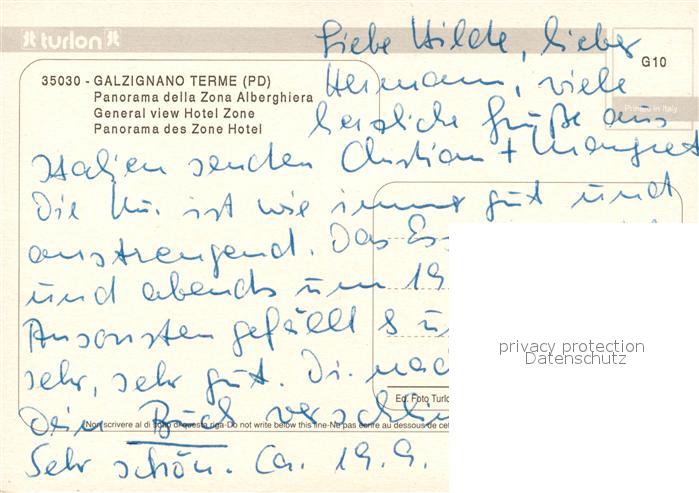 turlon
G10
Printed in Italy
35030 - GALZIGNANO TERME (PD)
Panorama della Zona Alberghiera
General view Hotel Zone
Panorama des Zone Hotel
Liebe Hilde, lieber
Hermann, viele
herzliche Grüße aus
Italien senden Christian + Margret
Die Kur ist wie immer gut und
anstrengend. Das Ess
und abends um 19
Ansonsten gefällt s
sehr, sehr gut. Di. nach
Dein Buch verschlin
Sehr schön. Ca. 19.9.
Ed. Foto Turlo
Non scrivere al di sotto di questa riga-Do not write below this line-Ne pas écrire au dessous de cet
privacy protection
Datenschutz